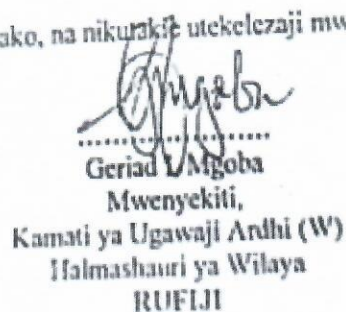 ako, na nikutakie utekelezaji mw
Geriad L Mgoba
Mwenyekiti,
Kamati ya Ugawaji Ardhi (W)
Halmashauri ya Wilaya
RUFIJI